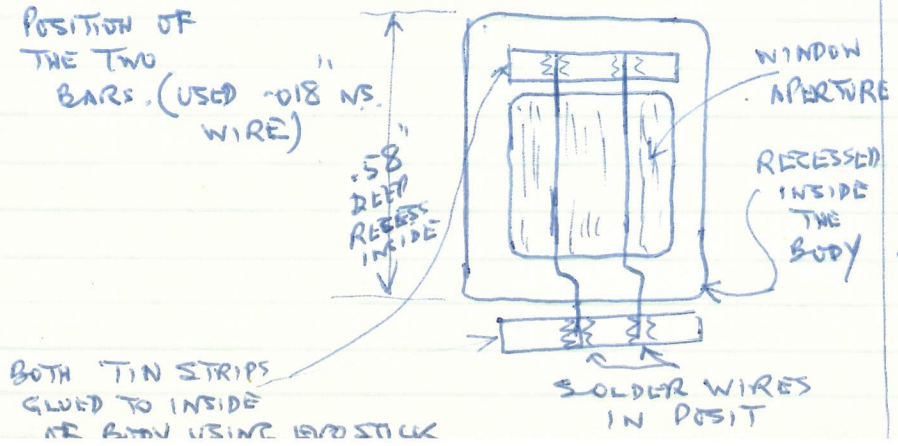 POSITION OF
THE TWO
BARS. (USED .018" NS.
WIRE)
.58"
DEEP
RECESS
INSIDE
WINDOW
APERTURE
RECESSED
INSIDE
THE
BODY
BOTH TIN STRIPS
GLUED TO INSIDE
OF BODY USING EVOSTICK
SOLDER WIRES
IN POSIT